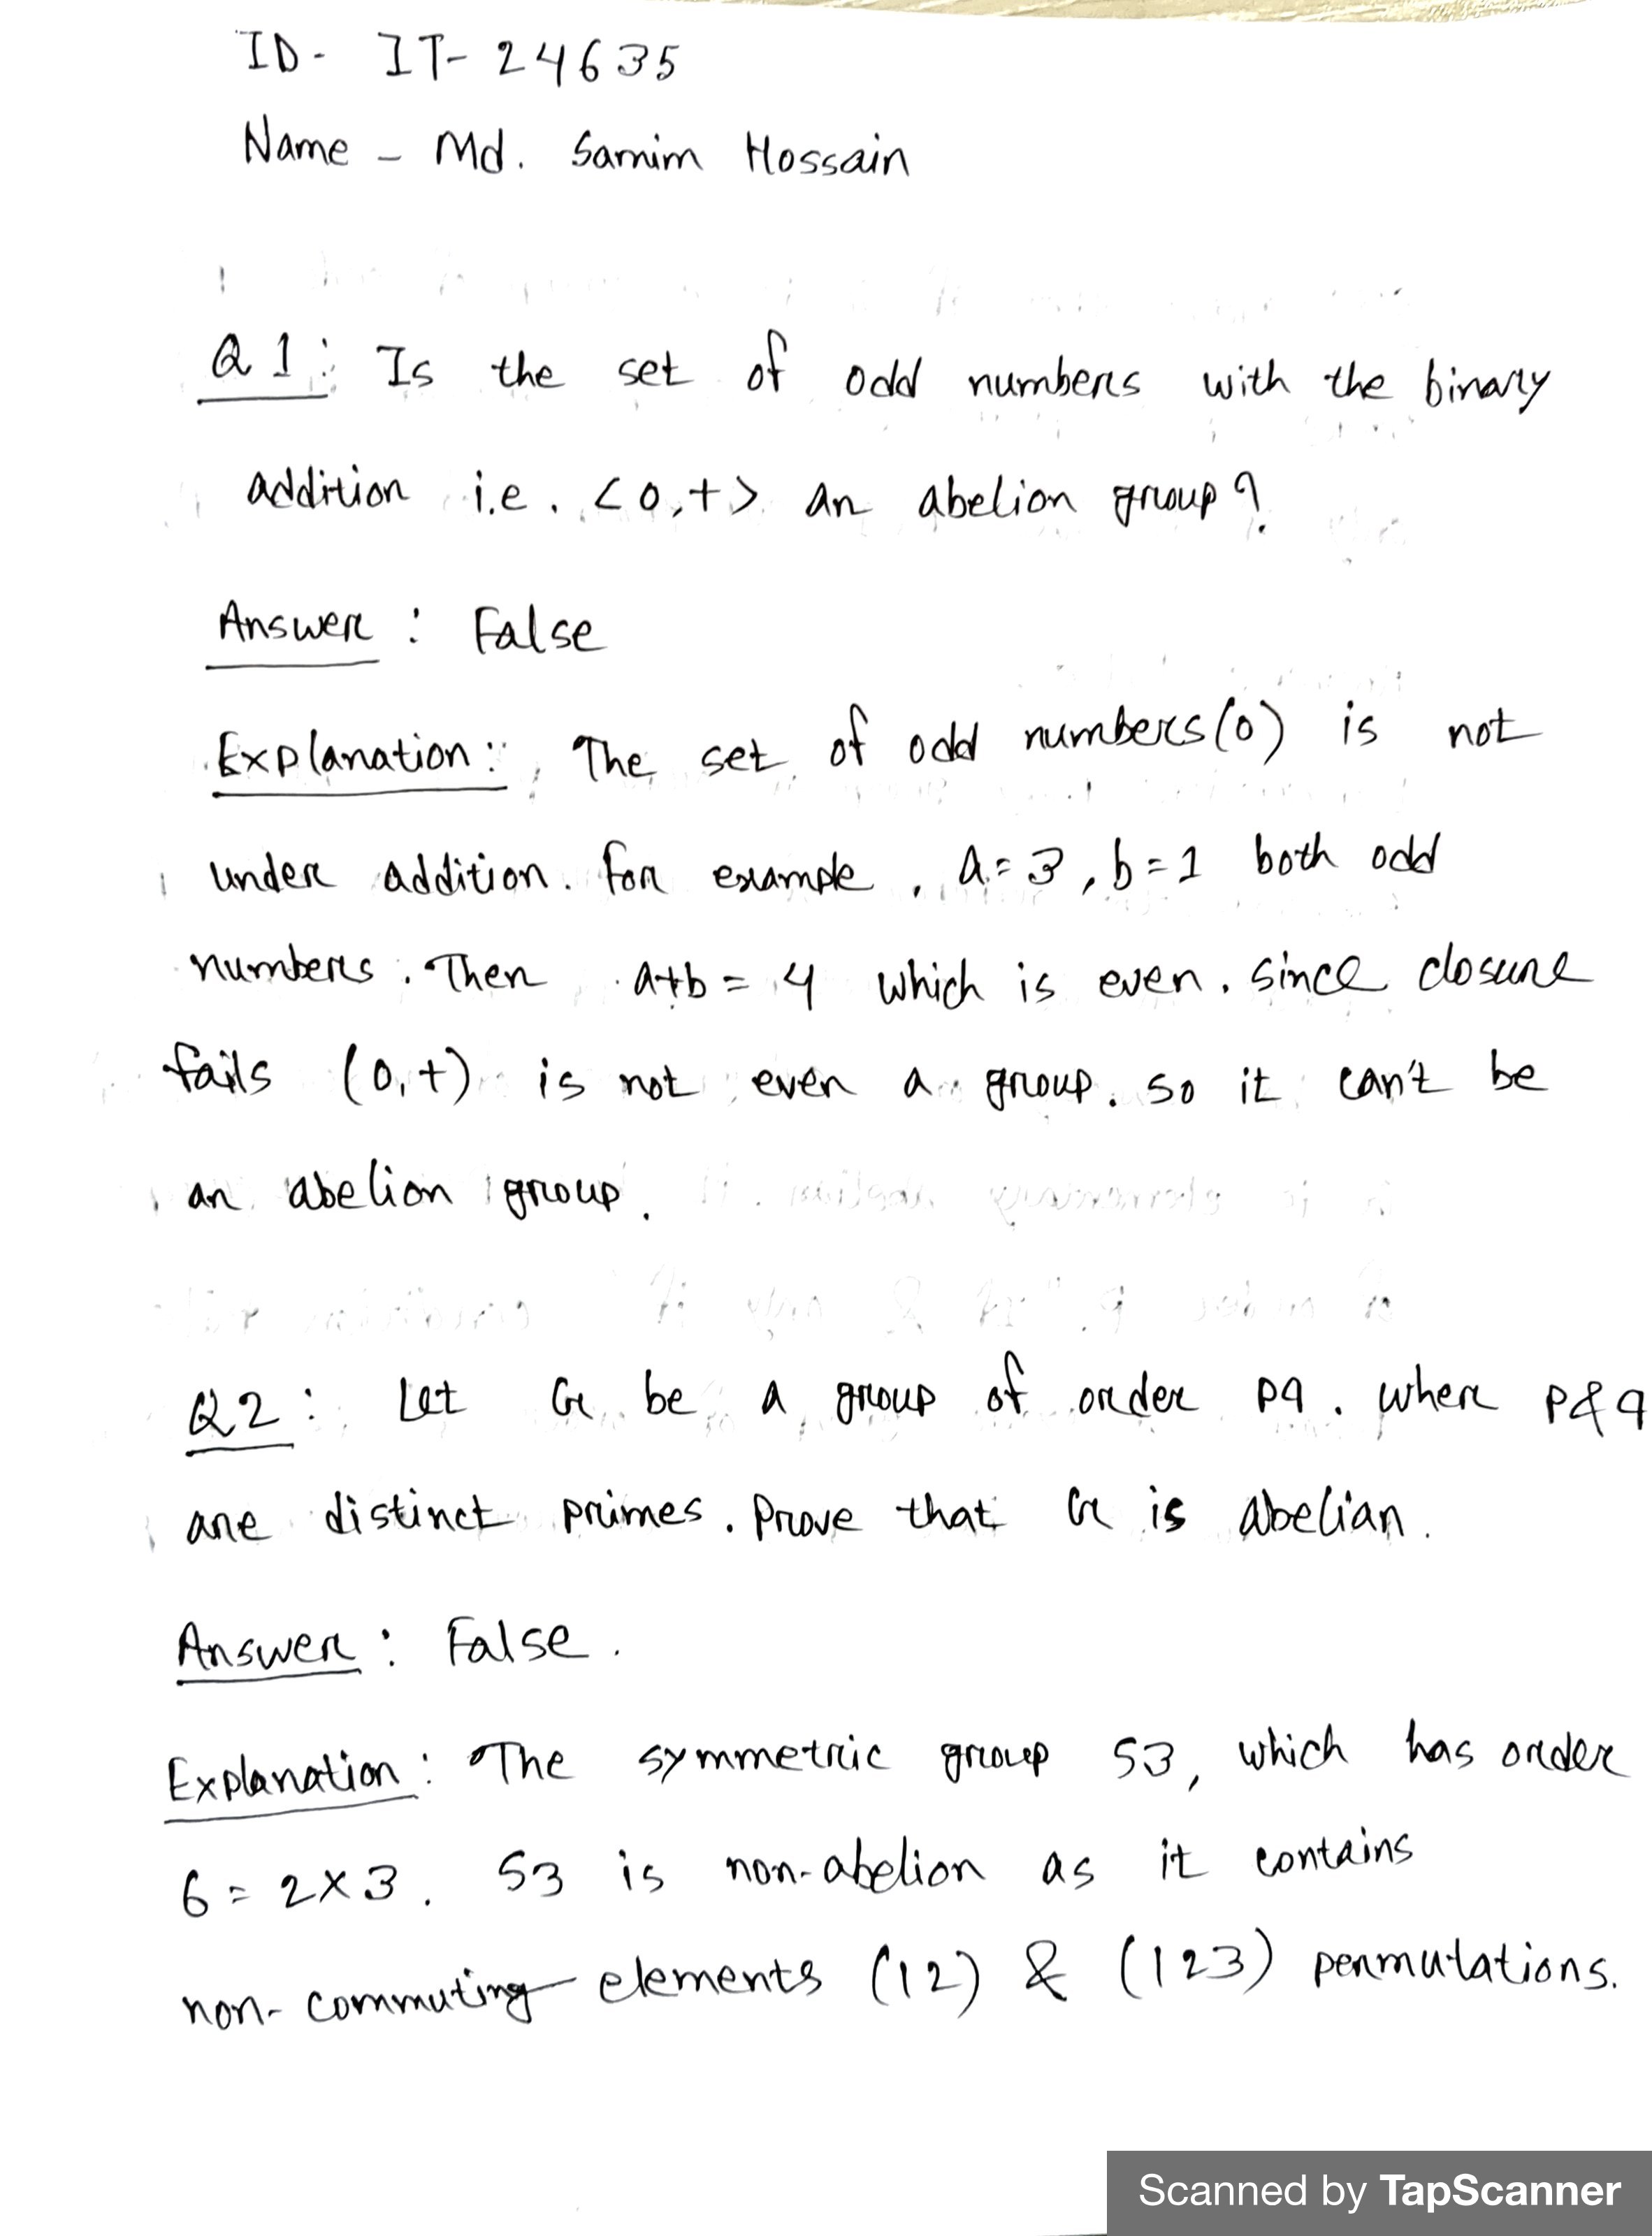 ID- IT-24635
Name - Md. Samim Hossain
Q1: Is the set of odd numbers with the binary
addition i.e. <0,+> an abelion group?
Answer: False
Explanation: The set of odd numbers(0) is not
under addition. For example, a=3, b=1 both odd
numbers. Then a+b = 4 which is even. since closure
fails (0,+) is not even a group. so it can't be
an abelion group.
Q2: Let G be a group of order pq. where p&q
are distinct primes. Prove that G is abelian.
Answer: False.
Explanation: The symmetric group S3, which has order
6 = 2×3. S3 is non-abelion as it contains
non-commuting elements (12) & (123) permutations.
Scanned by TapScanner